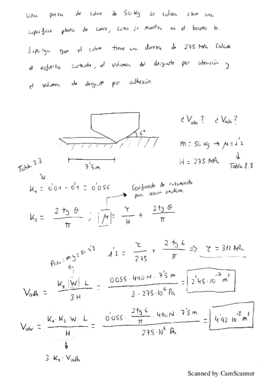 una pieza de cobre de 50 Kg se coloca sobre una
superficie plana de cobre, como se muestra en el boceto
Suponga que el cobre tiene una dureza de 275 MPa Calcule
el esfuerzo cortante, el volumen del desgaste por abrasión y
el volumen de desgaste por adhesión
6°
7'5m
¿Vabr? ¿Vadh?
m = 50 Kg → μ = 1'2
H = 275 MPa
Tabla 2.3
Tabla 2.3
K1 = 0'01 - 0'1 = 0'055
Coeficiente de rozamiento
K2 = 2 tg θ / π ; |μ| = τ / H + 2 tg θ / π
Peso: mg = 5·9'8
1'2 = τ / 275 + 2 tg 6 / π ⇒ τ = 312 MPa
Vadh = K1 |W| L / 3 H = 0'055 · 490 N · 7'5 m / 3 · 275 · 10⁶ Pa = 2'45 · 10⁻⁷ m³
Vabr = K1 K2 W L / H = 0'055 2 tg 6 / π · 490 N · 7'5 m / 275 · 10⁶ Pa = 4'92 · 10⁻⁸ m³
3 K2 · Vadh
Scanned by CamScanner